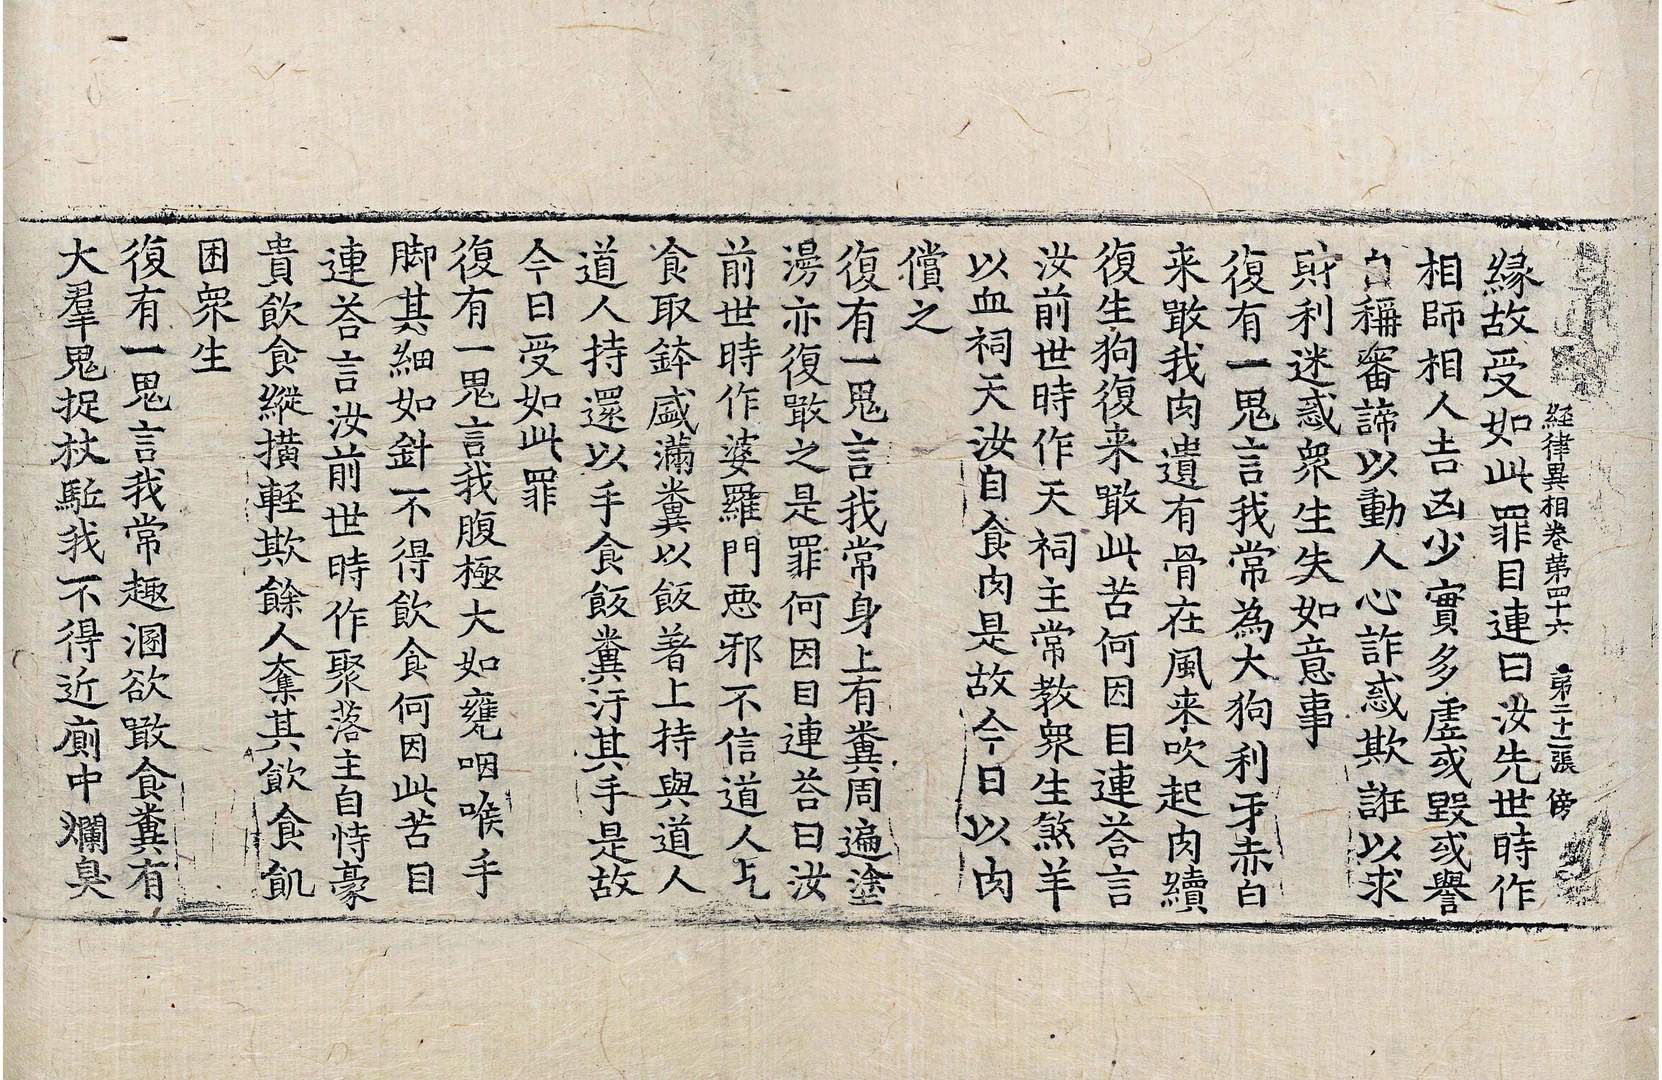 経律異相卷第四十六 第二十二張 傍
縁故受如此罪目連曰汝先世時作
相師相人吉凶少實多虛或毀或譽
自稱審諦以動人心詐惑欺誑以求
財利迷惑衆生失如意事
復有一鬼言我常為大狗利牙赤白
来噉我肉遺有骨在風来吹起肉續
復生狗復来噉此苦何因目連荅言
汝前世時作天祠主常教衆生煞羊
以血祠天汝自食肉是故今日以肉
償之
復有一鬼言我常身上有糞周遍塗
漫亦復噉之是罪何因目連荅曰汝
前世時作婆羅門惡邪不信道人乞
食取鉢盛滿糞以飯著上持與道人
道人持還以手食飯糞汙其手是故
今日受如此罪
復有一鬼言我腹極大如甕咽喉手
脚其細如針不得飲食何因此苦目
連荅言汝前世時作聚落主自恃豪
貴飲食縱撗輕欺餘人奪其飲食飢
困衆生
復有一鬼言我常趣溷欲噉食糞有
大羣鬼捉杖駈我不得近廁中爛臭